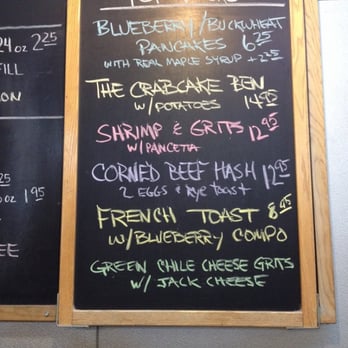 24oz 2.25
BLUEBERRY/BUCKWHEAT
PANCAKES 6.25
WITH REAL MAPLE SYRUP + 2.25
THE CRABCAKE BEN
W/POTATOES 14.95
SHRIMP & GRITS 12.95
W/PANCETTA
CORNED BEEF HASH 12.95
2 EGGS & RYE TOAST
FRENCH TOAST 8.95
W/BLUEBERRY COMPO
GREEN CHILE CHEESE GRITS
W/ JACK CHEESE
1.95